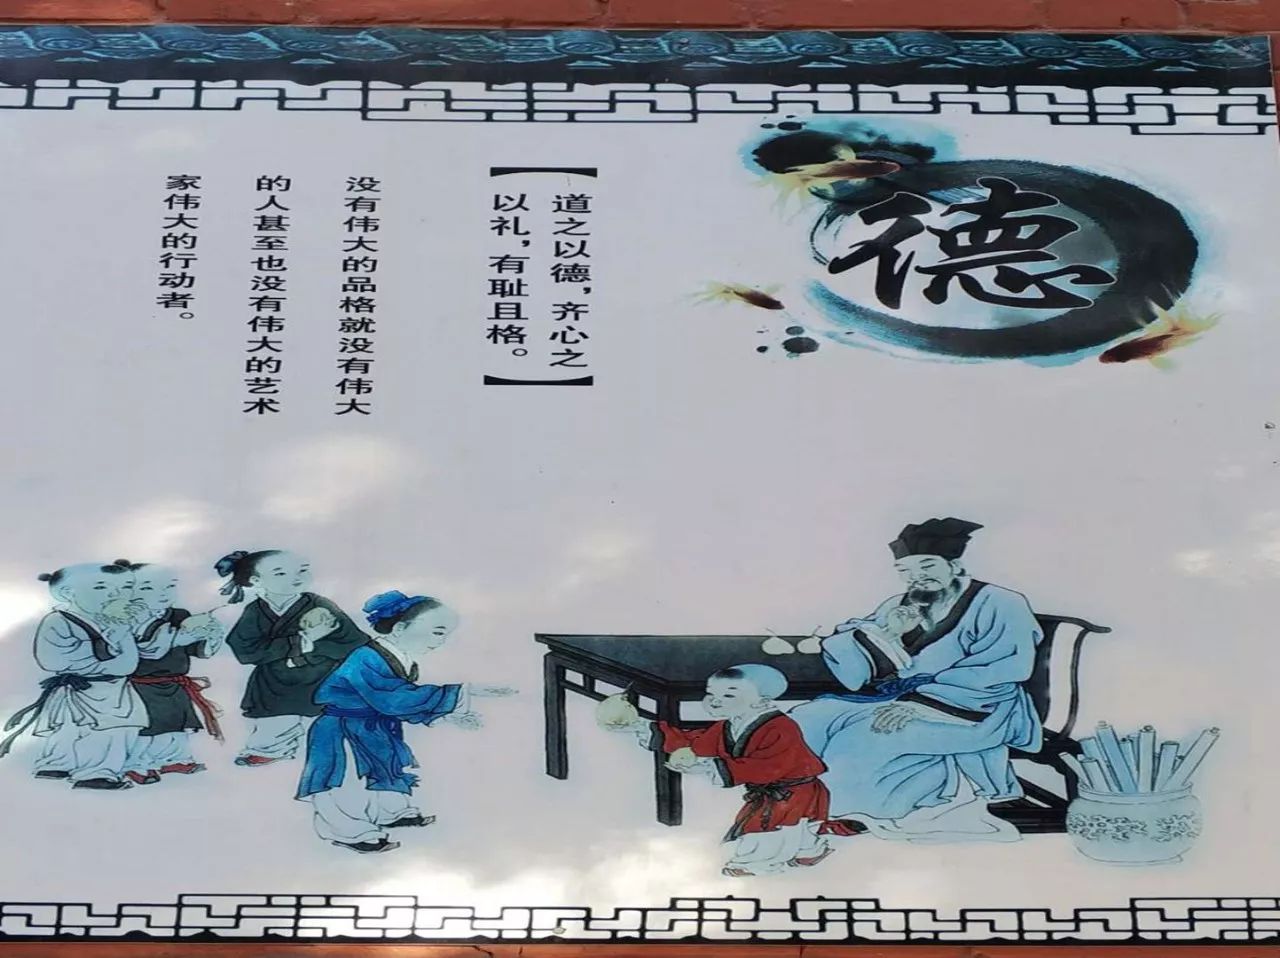 德
【道之以德，齐心之
以礼，有耻且格。】
没有伟大的品格就没有伟大
的人甚至也没有伟大的艺术
家伟大的行动者。